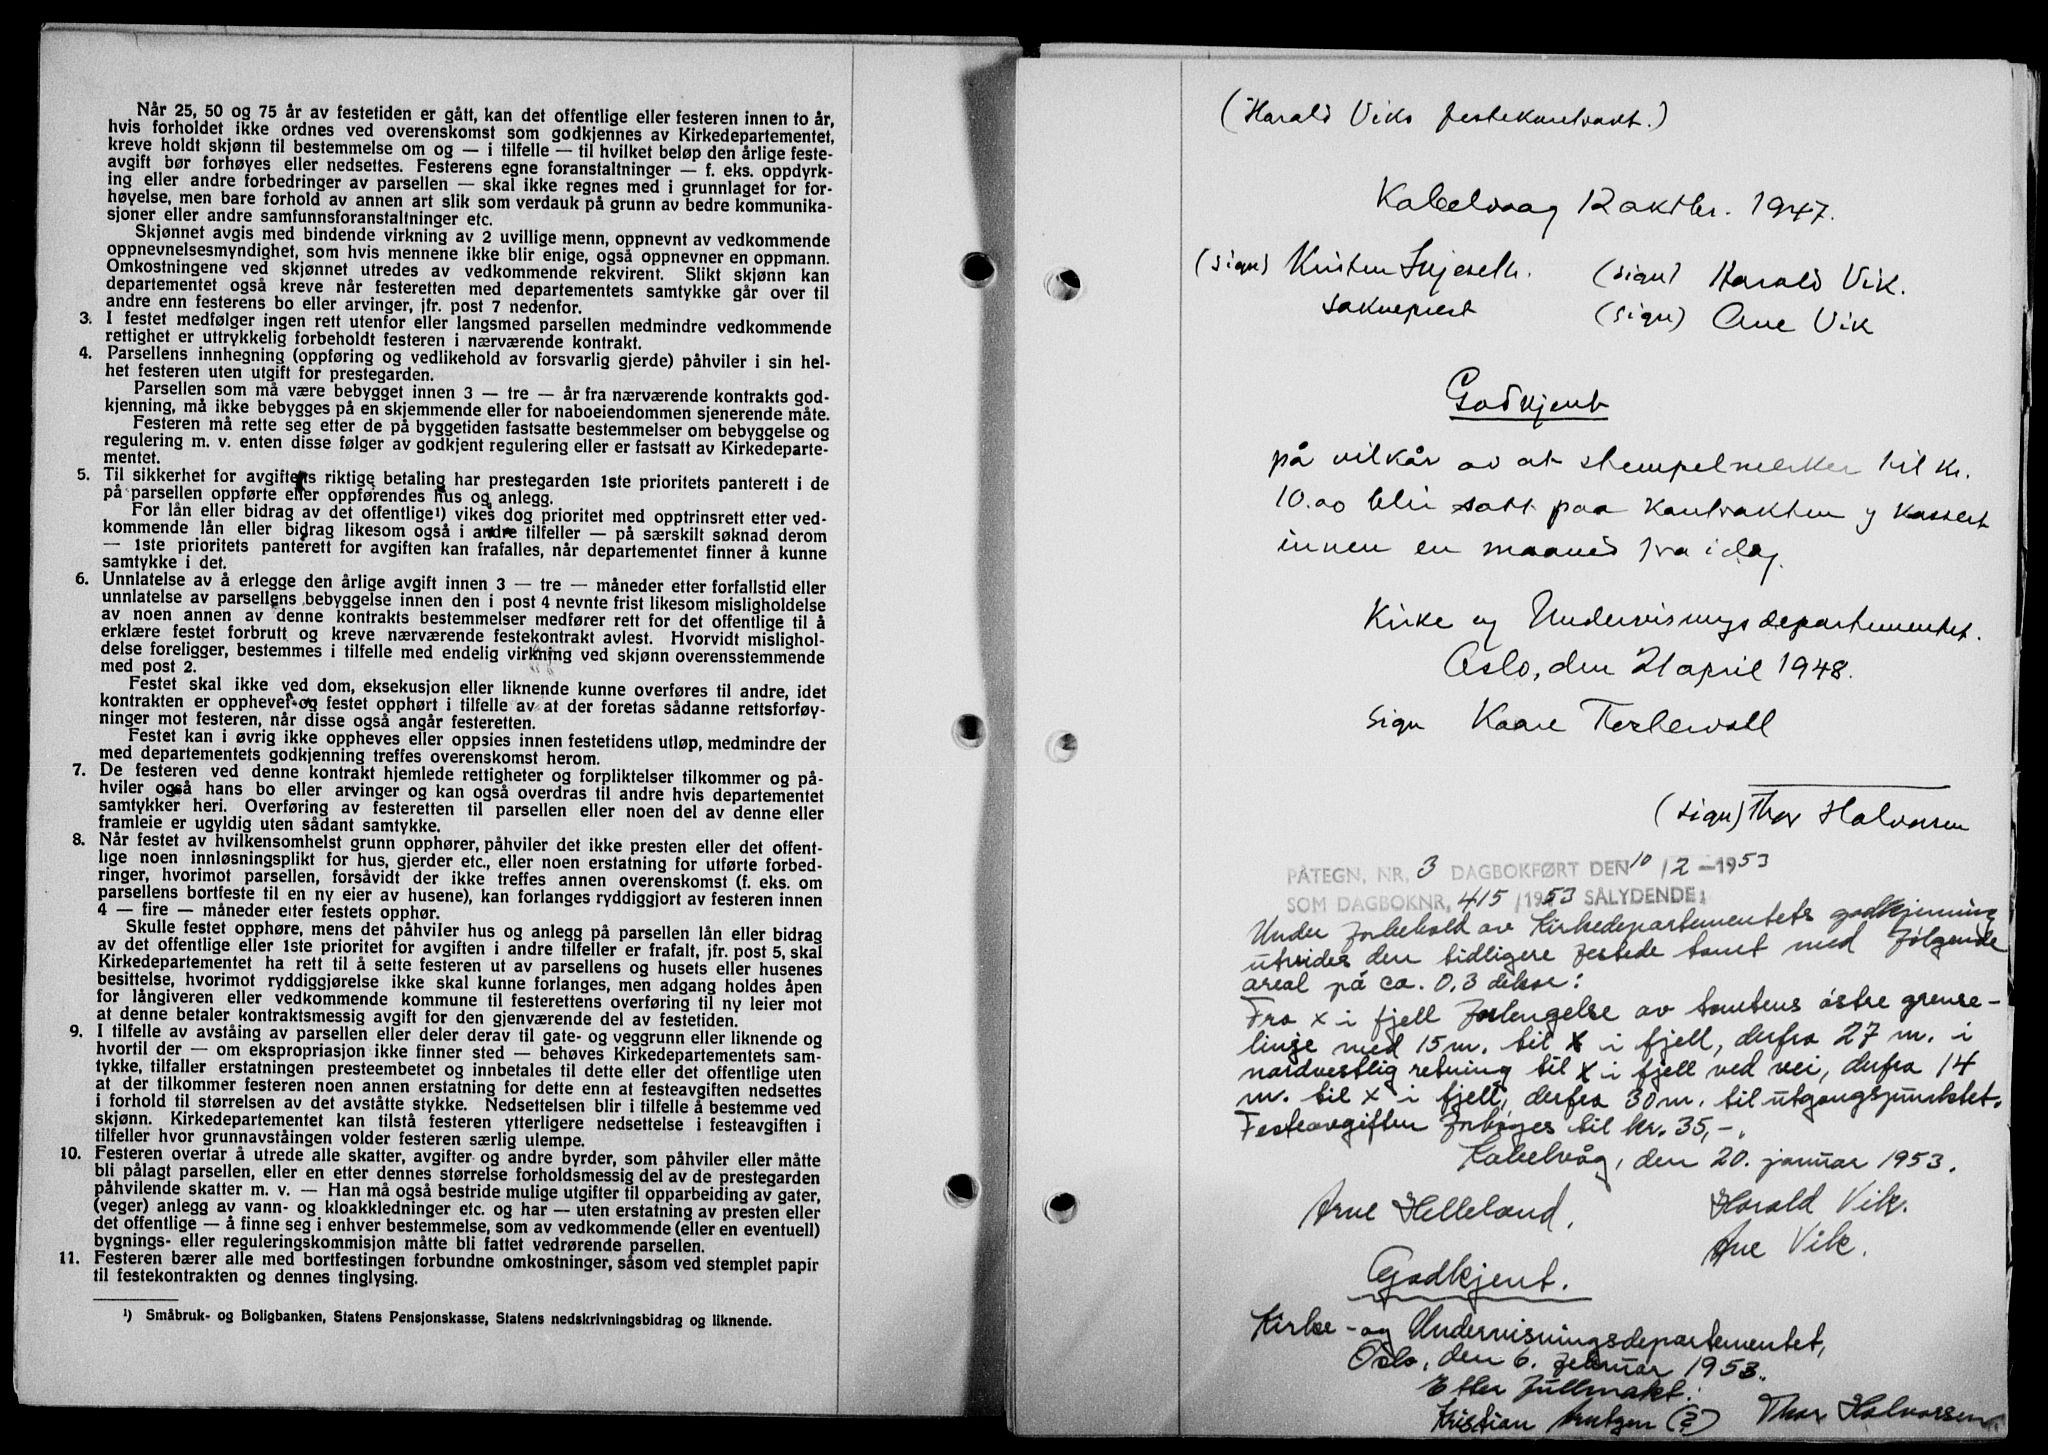 Når 25, 50 og 75 år av festetiden er gått, kan det offentlige eller festeren innen to år,
hvis forholdet ikke ordnes ved overenskomst som godkjennes av Kirkedepartementet,
kreve holdt skjønn til bestemmelse om og — i tilfelle — til hvilket beløp den årlige feste-
avgift bør forhøyes eller nedsettes. Festerens egne foranstaltninger — f. eks. oppdyrk-
ing eller andre forbedringer av parsellen — skal ikke regnes med i grunnlaget for for-
høyelse, men bare forhold av annen art slik som verdauk på grunn av bedre kommunika-
sjoner eller andre samfunnsforanstaltninger etc.
Skjønnet avgis med bindende virkning av 2 uvillige menn, oppnevnt av vedkommende
oppnevnelsesmyndighet, som hvis mennene ikke blir enige, også oppnevner en oppmann.
Omkostningene ved skjønnet utredes av vedkommende rekvirent. Slikt skjønn kan
departementet også kreve når festeretten med departementets samtykke går over til
andre enn festerens bo eller arvinger, jfr. post 7 nedenfor.
3. I festet medfølger ingen rett utenfor eller langsmed parsellen medmindre vedkommende
rettighet er uttrykkelig forbeholdt festeren i nærværende kontrakt.
4. Parsellens innhegning (oppføring og vedlikehold av forsvarlig gjerde) påhviler i sin hel-
het festeren uten utgift for prestegarden.
Parsellen som må være bebygget innen 3 — tre — år fra nærværende kontrakts god-
kjenning, må ikke bebygges på en skjemmende eller for naboeiendommen sjenerende måte.
Festeren må rette seg etter de på byggetiden fastsatte bestemmelser om bebyggelse og
regulering m. v. enten disse følger av godkjent regulering eller er fastsatt av Kirkedeparte-
mentet.
5. Til sikkerhet for avgiftens riktige betaling har prestegarden 1ste prioritets panterett i de
på parsellen oppførte eller oppførendes hus og anlegg.
For lån eller bidrag av det offentlige¹) vikes dog prioritet med opptrinsrett etter ved-
kommende lån eller bidrag likesom også i andre tilfeller — på særskilt søknad derom
— 1ste prioritets panterett for avgiften kan frafalles, når departementet finner å kunne
samtykke i det.
6. Unnlatelse av å erlegge den årlige avgift innen 3 — tre — måneder etter forfallstid eller
unnlatelse av parsellens bebyggelse innen den i post 4 nevnte frist likesom misligholdelse
av noen annen av denne kontrakts bestemmelser medfører rett for det offentlige til å
erklære festet forbrutt og kreve nærværende festekontrakt avlest. Hvorvidt misligh­ol-
delse foreligger, bestemmes i tilfelle med endelig virkning ved skjønn overensstemmende
med post 2.
Festet skal ikke ved dom, eksekusjon eller liknende kunne overføres til andre, idet
kontrakten er opphevet og festet opphørt i tilfelle av at der foretas sådanne rettsforføy-
ninger mot festeren, når disse også angår festeretten.
Festet kan i øvrig ikke oppheves eller oppsies innen festetidens utløp, medmindre der
med departementets godkjenning treffes overenskomst herom.
7. De festeren ved denne kontrakt hjemlede rettigheter og forpliktelser tilkommer og på-
hviler også hans bo eller arvinger og kan også overdras til andre hvis departementet
samtykker heri. Overføring av festeretten til parsellen eller noen del av denne eller
framleie er ugyldig uten sådant samtykke.
8. Når festet av hvilkensomhelst grunn opphører, påhviler det ikke presten eller det offent-
lige noen innløsningsplikt for hus, gjerder etc., eller noen erstatning for utførte forbed-
ringer, hvorimot parsellen, forsåvidt der ikke treffes annen overenskomst (f. eks. om
parsellens bortfeste til en ny eier av husene), kan forlanges ryddiggjort av festeren innen
4 — fire — måneder etter festets opphør.
Skulle festet opphøre, mens det påhviler hus og anlegg på parsellen lån eller bidrag
av det offentlige eller 1ste prioritet for avgiften i andre tilfeller er frafalt, jfr. post 5, skal
Kirkedepartementet ha rett til å sette festeren ut av parsellens og husets eller husenes
besittelse, hvorimot ryddiggjørelse ikke skal kunne forlanges, men adgang holdes åpen
for långiveren eller vedkommende kommune til festerettens overføring til ny leier mot
at denne betaler kontraktsmessig avgift for den gjenværende del av festetiden.
9. I tilfelle av avståing av parsellen eller deler derav til gate- og veggrunn eller liknende og
hvortil der — om ekspropriasjon ikke finner sted — behøves Kirkedepartementets sam-
tykke, tilfaller erstatningen presteembetet og innbetales til dette eller det offentlige uten
at der tilkommer festeren noen annen erstatning for dette enn at festeavgiften nedsettes
i forhold til størrelsen av det avståtte stykke. Nedsettelsen blir i tilfelle å bestemme ved
skjønn. Kirkedepartementet kan tilstå festeren ytterligere nedsettelse i festeavgiften i
tilfeller hvor grunnavståingen volder festeren særlig ulempe.
10. Festeren overtar å utrede alle skatter, avgifter og andre byrder, som påhviler eller måtte
bli pålagt parsellen, eller en etter dennes størrelse forholdsmessig del av de prestegarden
påhvilende skatter m. v. — Han må også bestride mulige utgifter til opparbeiding av gater,
(veger) anlegg av vann- og kloakkledninger etc. og har — uten erstatning av presten eller
det offentlige — å finne seg i enhver bestemmelse, som av vedkommende (eller en eventuell)
bygnings- eller reguleringskommisjon måtte bli fattet vedrørende parsellen.
11. Festeren bærer alle med bortfestingen forbundne omkostninger, såsom ved stemplet papir
til festekontrakten og dennes tinglysing.
¹) Småbruk- og Boligbanken, Statens Pensjonskasse, Statens nedskrivningsbidrag og liknende.
(Harald Viks festekontrakt.)
Kabelvaag 12 oktbr. 1947.
(sign) Kristen (sign) Harald Vik.
sokneprest (sign) Ane Vik
Godkjent
på vilkår av at stempelmerker til kr.
10.00 blir satt paa kontrakten og kassert
innen en maaned fra idag.
Kirke og Undervisningsdepartementet.
Oslo, den 21 april 1948.
sign Kaare
(sign) Thor Halvorsen
PÅTEGN. NR. 3 DAGBOKFØRT DEN 10/2 - 1953
SOM DAGBOKNR. 415/1953 SÅLYDENDE:
Under forbehold av Kirkedepartementets godkjenning
utvides den tidligere festede tomt med følgende
areal på ca. 0,3 dekar:
Fra x i fjell forlengelse av tomtens østre grense-
linje med 15 m. til x i fjell, derfra 27 m. i
nordvestlig retning til x i fjell ved vei, derfra 14
m. til x i fjell, derfra 30 m. til utgangspunktet.
Festeavgiften forhøyes til kr. 35,-.
Kabelvåg, den 20. januar 1953.
Arne Helleland. Harald Vik.
Ane Vik.
Godkjent.
Kirke- og Undervisningsdepartementet,
Oslo, den 6. februar 1953.
Etter fullmakt.
Kristian (?) Thor Halvorsen.